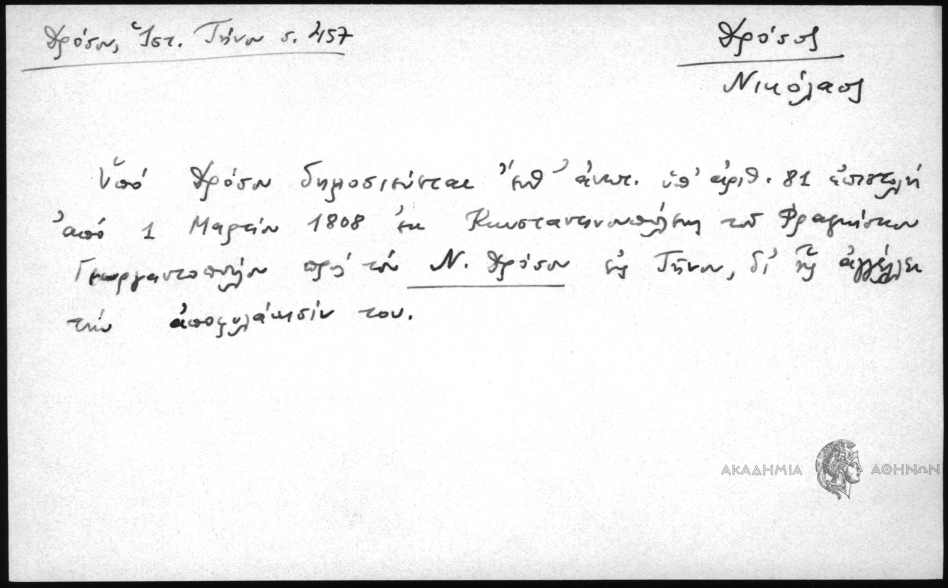 Δρόσου, Ἱστ. Τήνου σ. 457
Δρόσος
Νικόλαος
Ὑπό Δρόσου δημοσιεύεται ἔνθ' ἀνωτ. ὑπ' ἀριθ. 81 ἐπιστολή
ἀπό 1 Μαρτίου 1808 ἐκ Κωνσταντινουπόλεως τοῦ Φραγκίσκου
Γεωργαντοπούλου πρός τόν Ν. Δρόσον εἰς Τῆνον, δι' ἧς ἀγγέλλει
τήν ἀποφυλάκισίν του.
ΑΚΑΔΗΜΙΑ ΑΘΗΝΩΝ